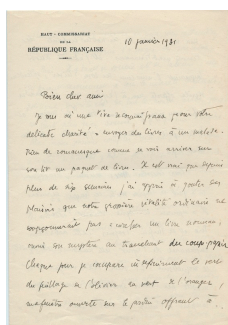 HAUT-COMMISSARIAT
DE LA
RÉPUBLIQUE FRANÇAISE
10 janvier 1931
Bien cher ami
Je vous ai une vive reconnaissance pour votre
délicate charité : envoyer des livres à un malade.
Rien de romanesque comme de voir arriver sur
son lit un paquet de livres. Il est vrai que depuis
plus de six semaines j'ai appris à goûter des
plaisirs que notre grossière vitalité ordinaire ne
soupçonnait pas : couper un livre nouveau,
ouvrir son mystère au tranchant du coupe-papier.
Chaque jour je compare indéfiniment le vert
du feuillage de l'olivier au vert de l'oranger,
ma fenêtre ouverte sur le jardin offrant à